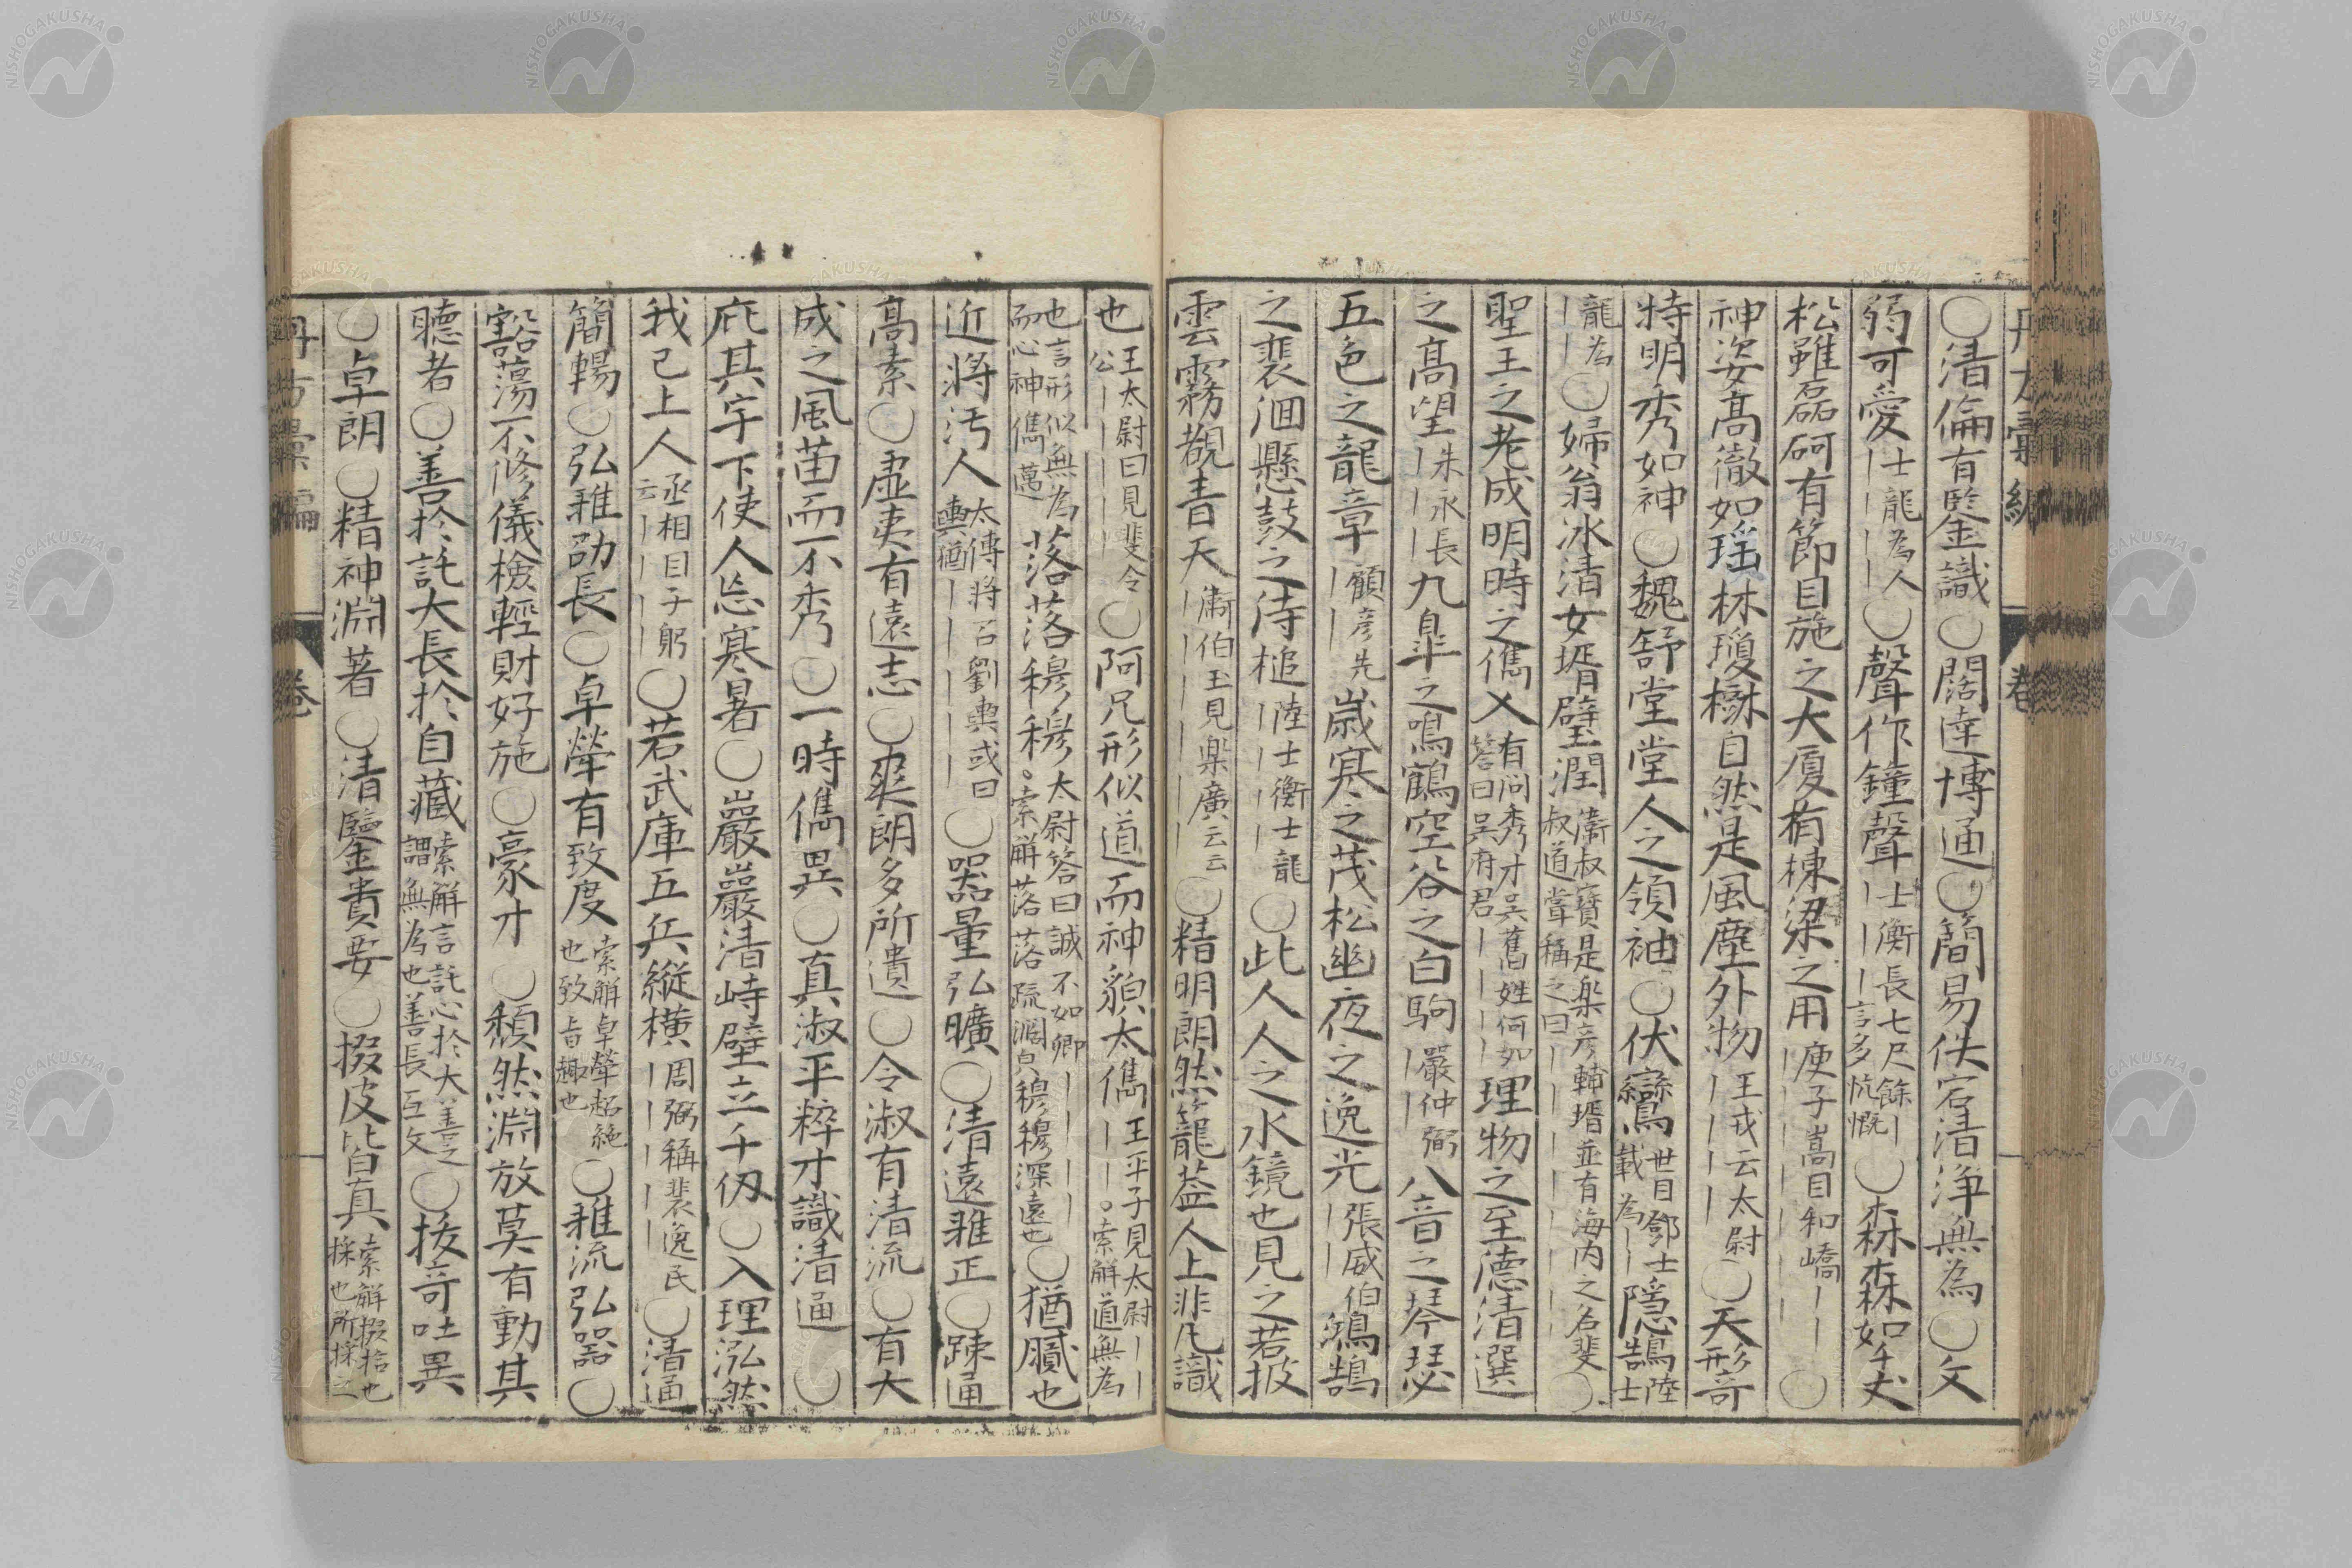 ○清倫有鑒識○闊達博通○簡易佚宕清淨無為○文
弱可愛｜士龍為人｜｜｜○聲作鐘聲｜士衡長七尺餘｜｜｜言多忼慨○森森如千丈
松雖磊砢有節目施之大廈有棟梁之用｜庾子嵩目和嶠｜｜｜○
神姿高徹如瑤林瓊樹自然是風塵外物｜王戎云太尉｜｜｜○天形奇
特明秀如神○魏舒堂堂人之領袖○伏鸞世目鄧士載為｜｜隱鵠陸士
龍為｜｜○婦翁冰清女壻璧潤衞叔寶是樂彥輔壻並有海內之名裴叔道嘗稱之曰｜｜｜｜○
聖王之老成明時之儁乂有問秀才吳舊姓何如答曰吳府君｜｜｜｜理物之至德清選
之高望｜朱永長｜｜九皐之鳴鶴空谷之白駒｜嚴仲弼｜｜八音之琴瑟
五色之龍章｜顧彥先｜｜歲寒之茂松幽夜之逸光｜張威伯｜鴻鵠
之裴洄懸鼓之待槌｜陸士衡士龍｜｜○此人人之水鏡也見之若披
雲霧覩青天｜衞伯玉見樂廣云云｜｜｜○精明朗然籠蓋人上非凡識
也王太尉曰見裴令公｜｜｜｜○阿兄形似道而神貌太儁王平子見太尉｜｜｜｜。索解道無為
也言形似無為而心神儁邁落落穆穆太尉答曰誠不如卿｜｜｜｜。索解落落疏濶皃穆穆深遠也○猶膩也
近將汚人太傅將召劉輿或曰輿猶｜｜｜｜○器量弘曠○清遠雅正○踈通
高素○虛夷有遠志○爽朗多所遺○令淑有清流○有大
成之風苗而不秀○一時儁異○真淑平粹才識清通○
庇其宇下使人忘寒暑○巖巖清峙壁立千仞○入理泓然
我已上人丞相目子躬云｜｜｜｜○若武庫五兵縱橫｜周弼稱裴逸民｜｜｜｜○清通
簡暢○弘雅劭長○卓犖有致度索解卓犖超絕也致旨趣也○雅流弘器○
豁蕩不修儀檢輕財好施○豪才○頹然淵放莫有動其
聽者○善於託大長於自藏索解言託心於大善之謂無為也善長互文○拔奇吐異
○卓朗○精神淵著○清鑒貴要○掇皮皆真索解掇拾也採也所採之
丹方彙編
卷